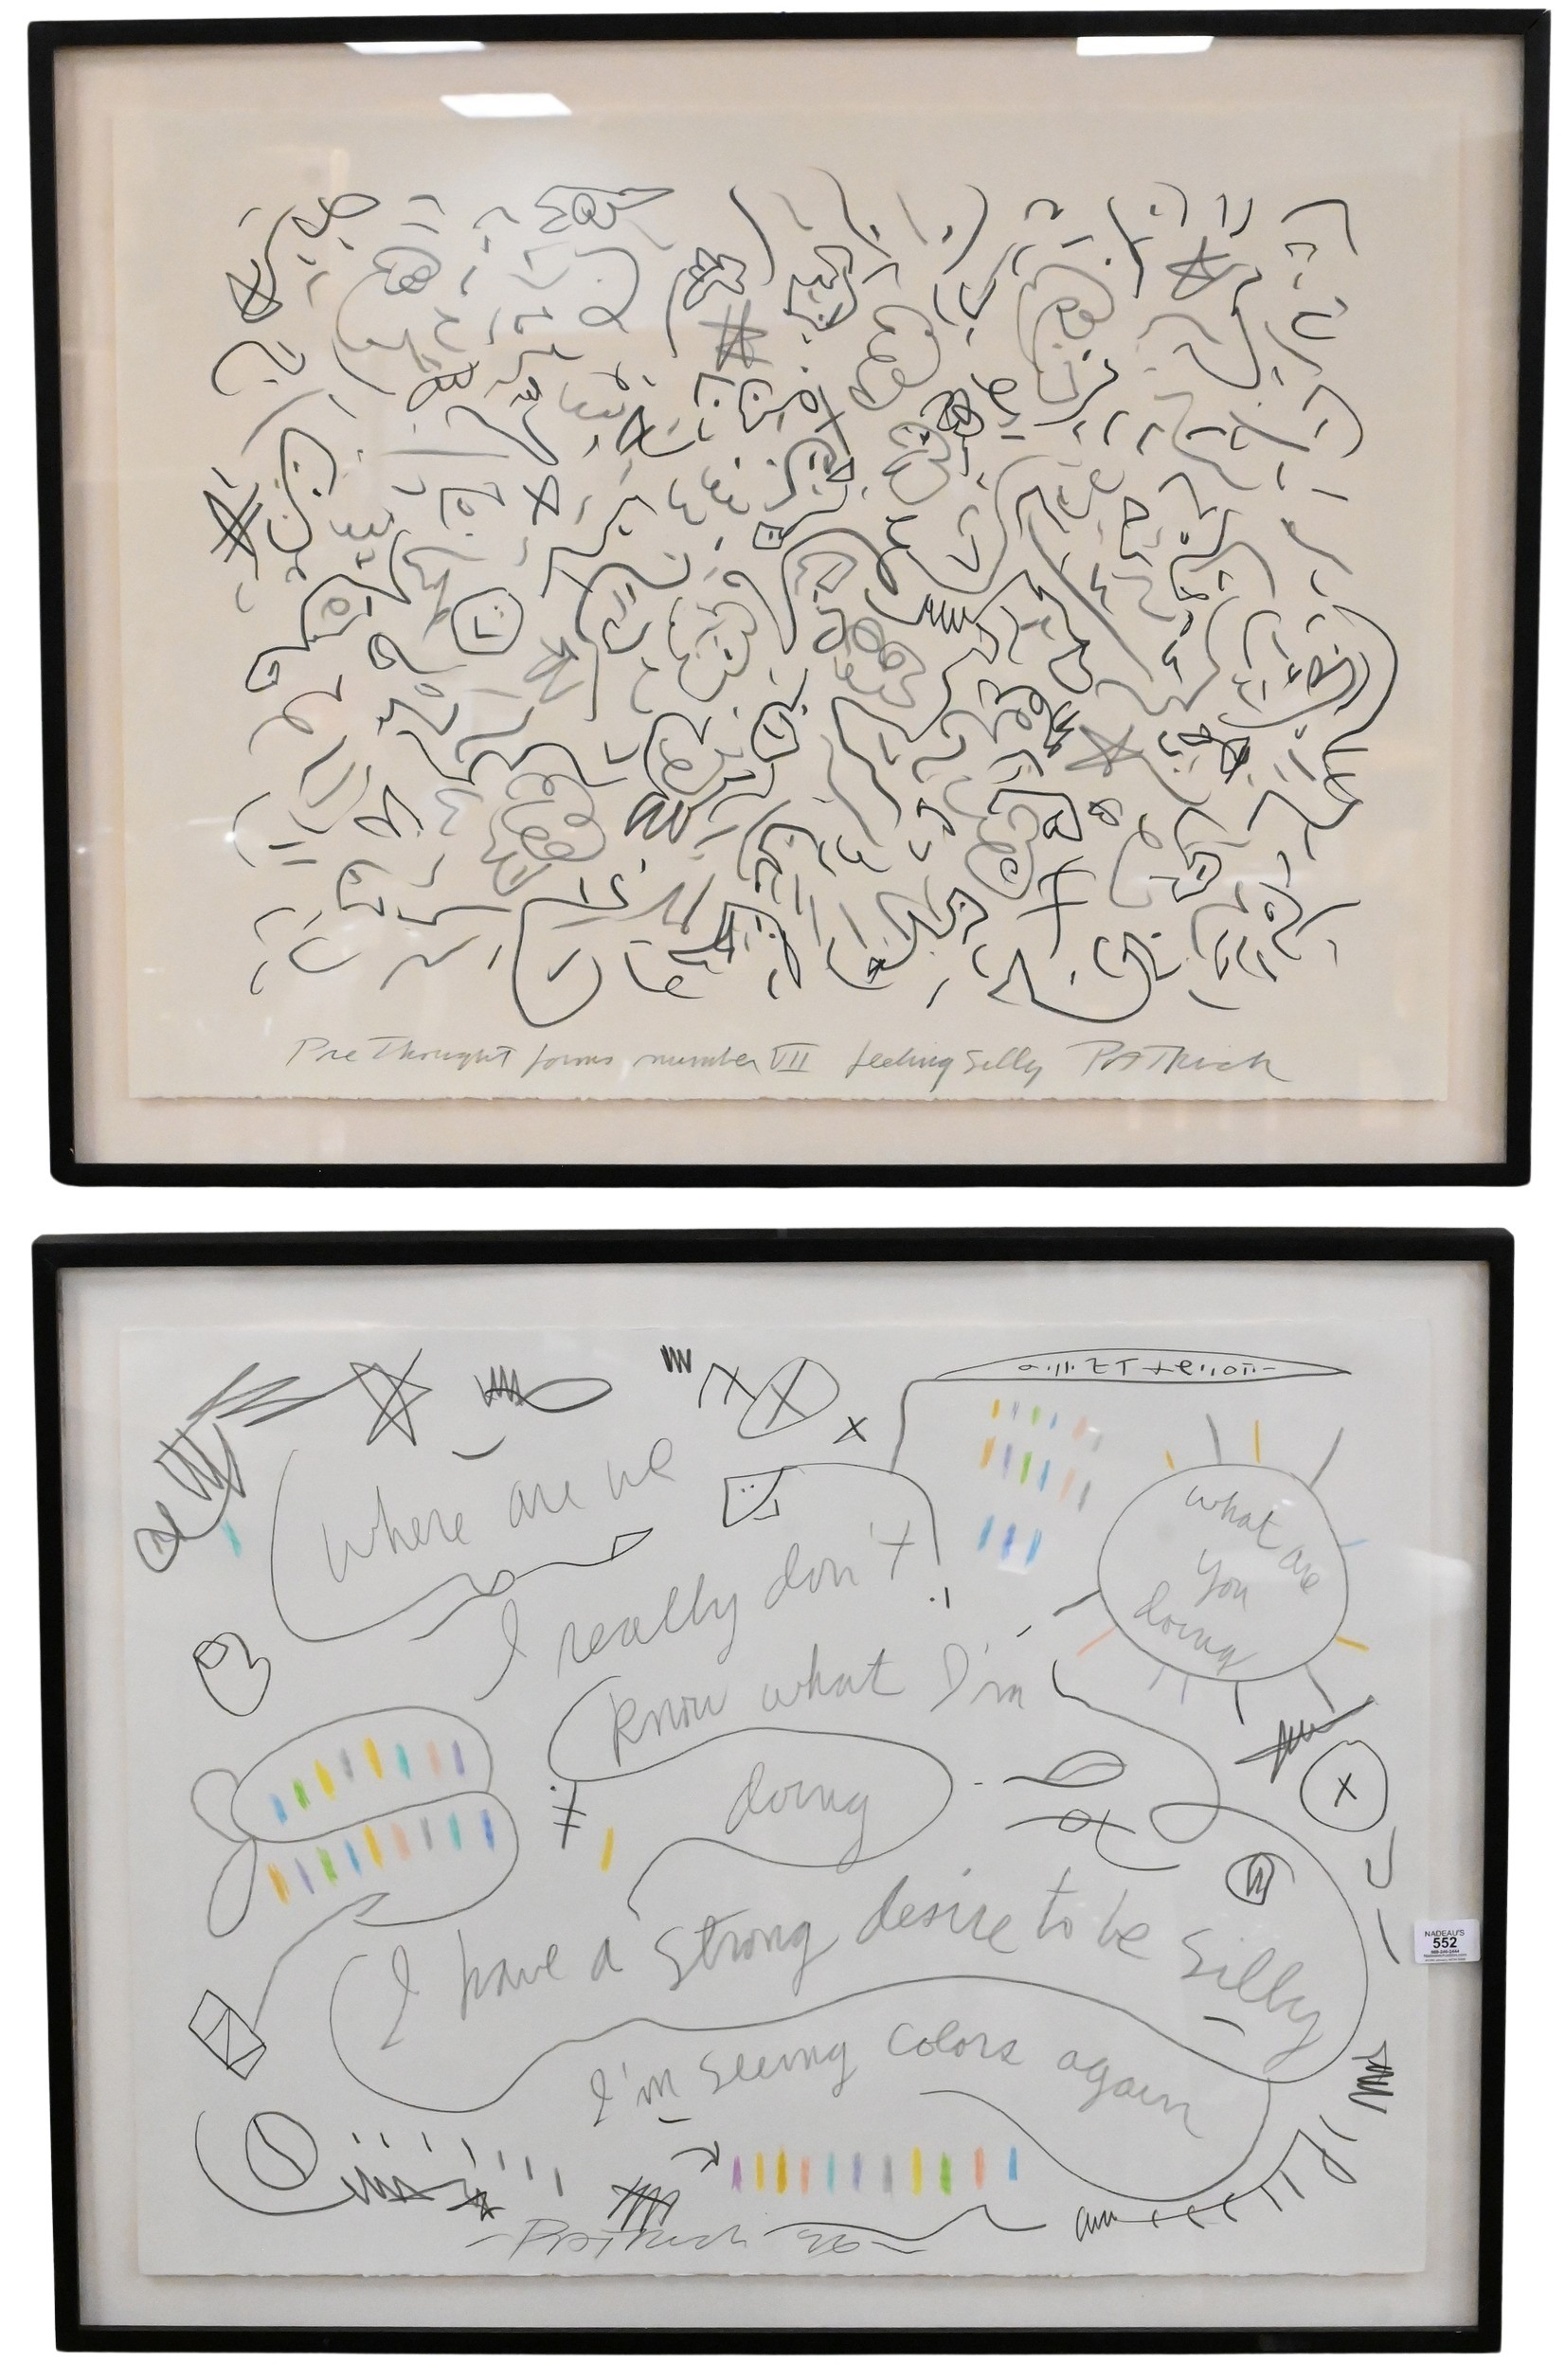 Pre Thought forms number VII feeling Silly PATRick
where are we
I really don't
know what I'm
doing
what are
you
doing
I have a strong desire to be silly
I'm seeing colors again
PATRick 96
NADEAU'S
552